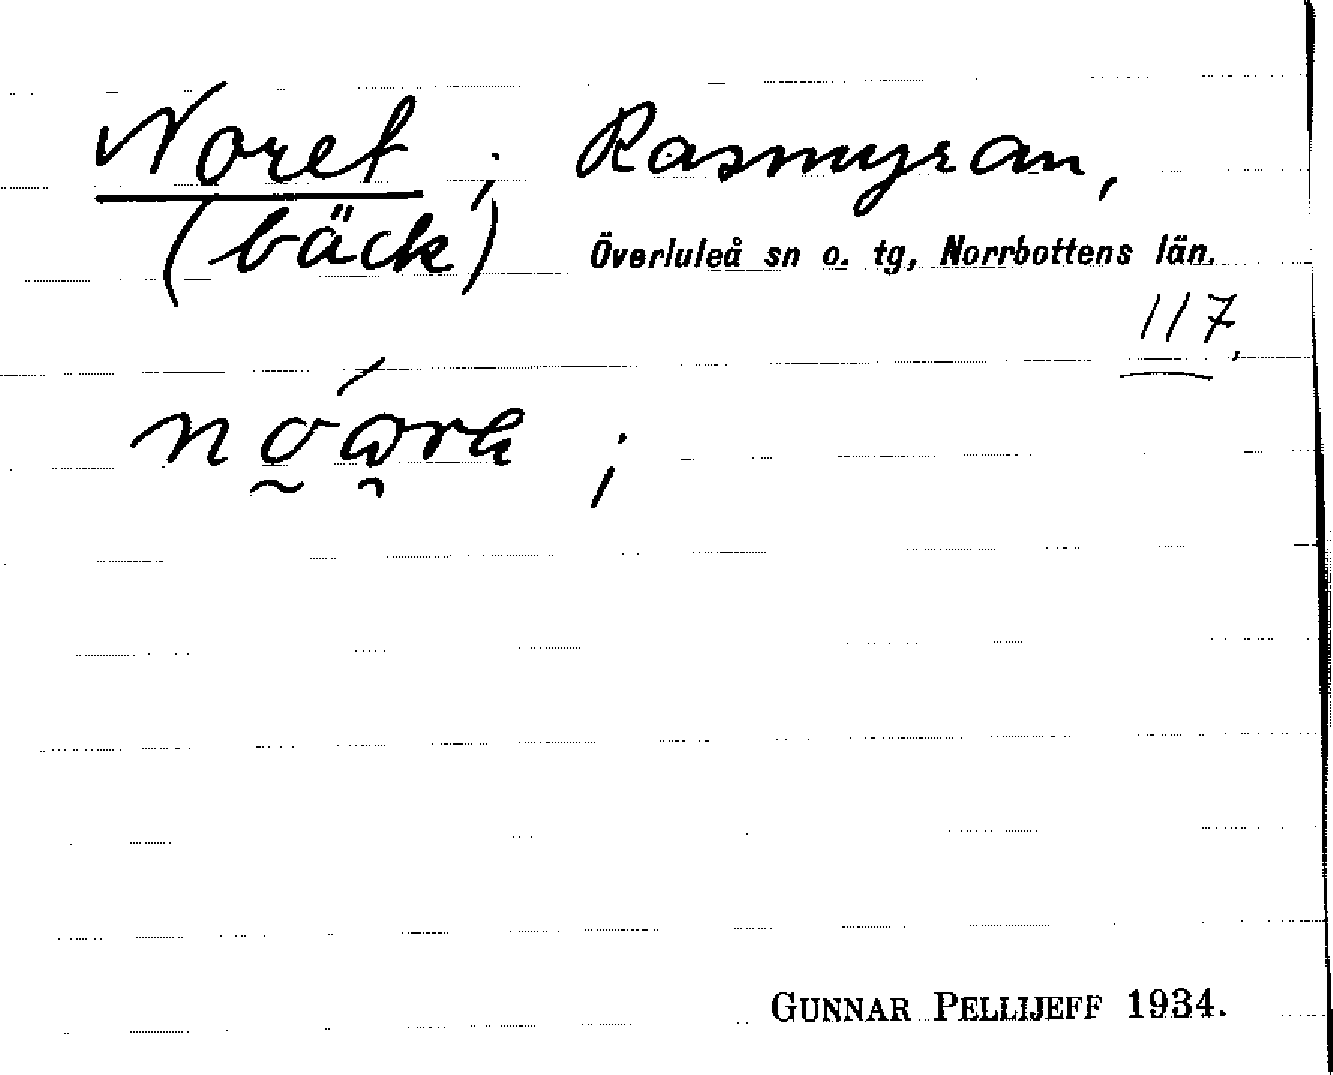 Noret ; Rasmyran,
(bäck) Överluleå sn o. tg, Norrbottens län.
117,
GUNNAR PELLIJEFF 1934.